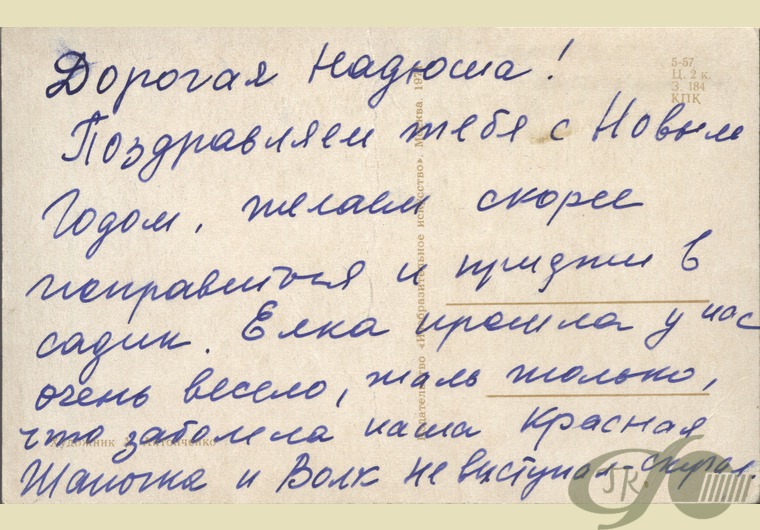 Дорогая Надюша!
Поздравляем тебя с Новым
Годом, желаем скорее
поправиться и придти в
садик. Елка прошла у нас
очень весело, жаль только,
что заболела наша Красная
Шапочка и Волк не выступал - скучал.
5-57
Ц. 2 к.
З. 184
КПК
Издательство «Изобразительное искусство». Москва. 197
Художник Антонченко
JR